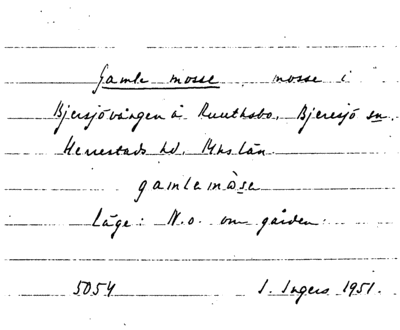 Gamle mosse . mosse i
Bjersjövången å Ruuthsbo. Bjeresjö sn.
Herrestads hd. Mhs län
gamlemåse
Läge: N.o. om gården.
5054 I. Ingers 1951.